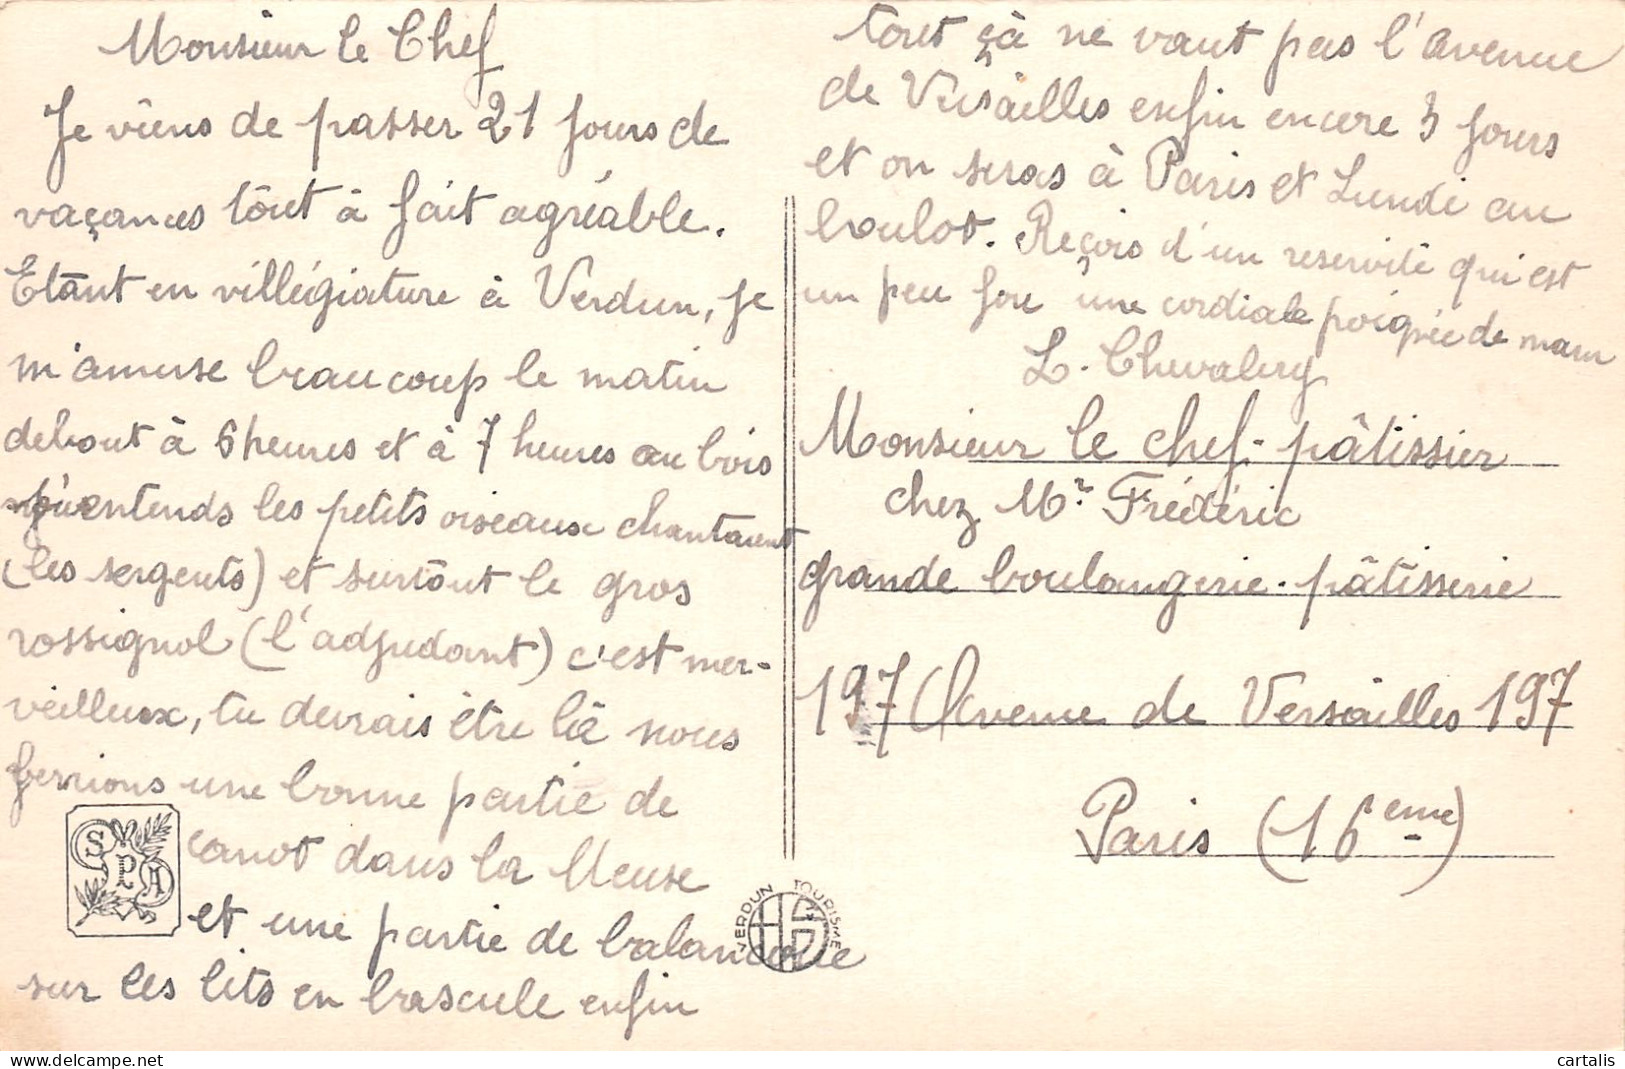 Monsieur le Chef
Je viens de passer 21 jours de
vaçances tout à fait agréable.
Etant en villégiature à Verdun, je
m'amuse beaucoup le matin
debout à 6 heures et à 7 heures au bois
j'entends les petits oiseaux chantaient
(les sergents) et surtout le gros
rossignol (l'adjudant) c'est mer-
veilleux, tu devrais être là nous
ferrions une bonne partie de
canot dans la Meuse
et une partie de balançoire
sur les lits en bascule enfin
tout çà ne vaut pas l'avenue
de Versailles enfin encore 3 jours
et on seras à Paris et Lundi au
boulot. Reçois d'un reservité qui est
un peu fou une cordiale poignée de main
L. Chevalery
Monsieur le chef-pâtissier
chez Mr Frédéric
grande boulangerie-pâtisserie
197 Avenue de Versailles 197
Paris (16eme)
SPA
VERDUN TOURISME
HS
cartalis